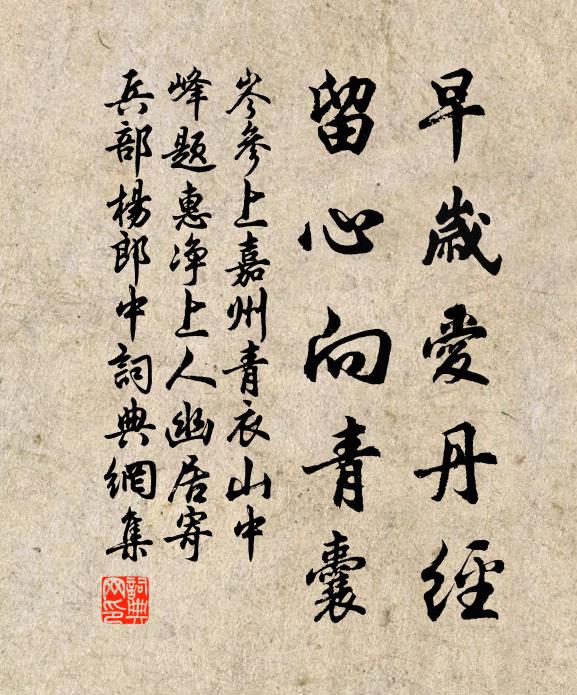 早歲愛丹經
留心向青囊
岑參上嘉州青衣山中
峰題惠净上人幽居寄
兵部楊郎中詞典網集
詞典网印